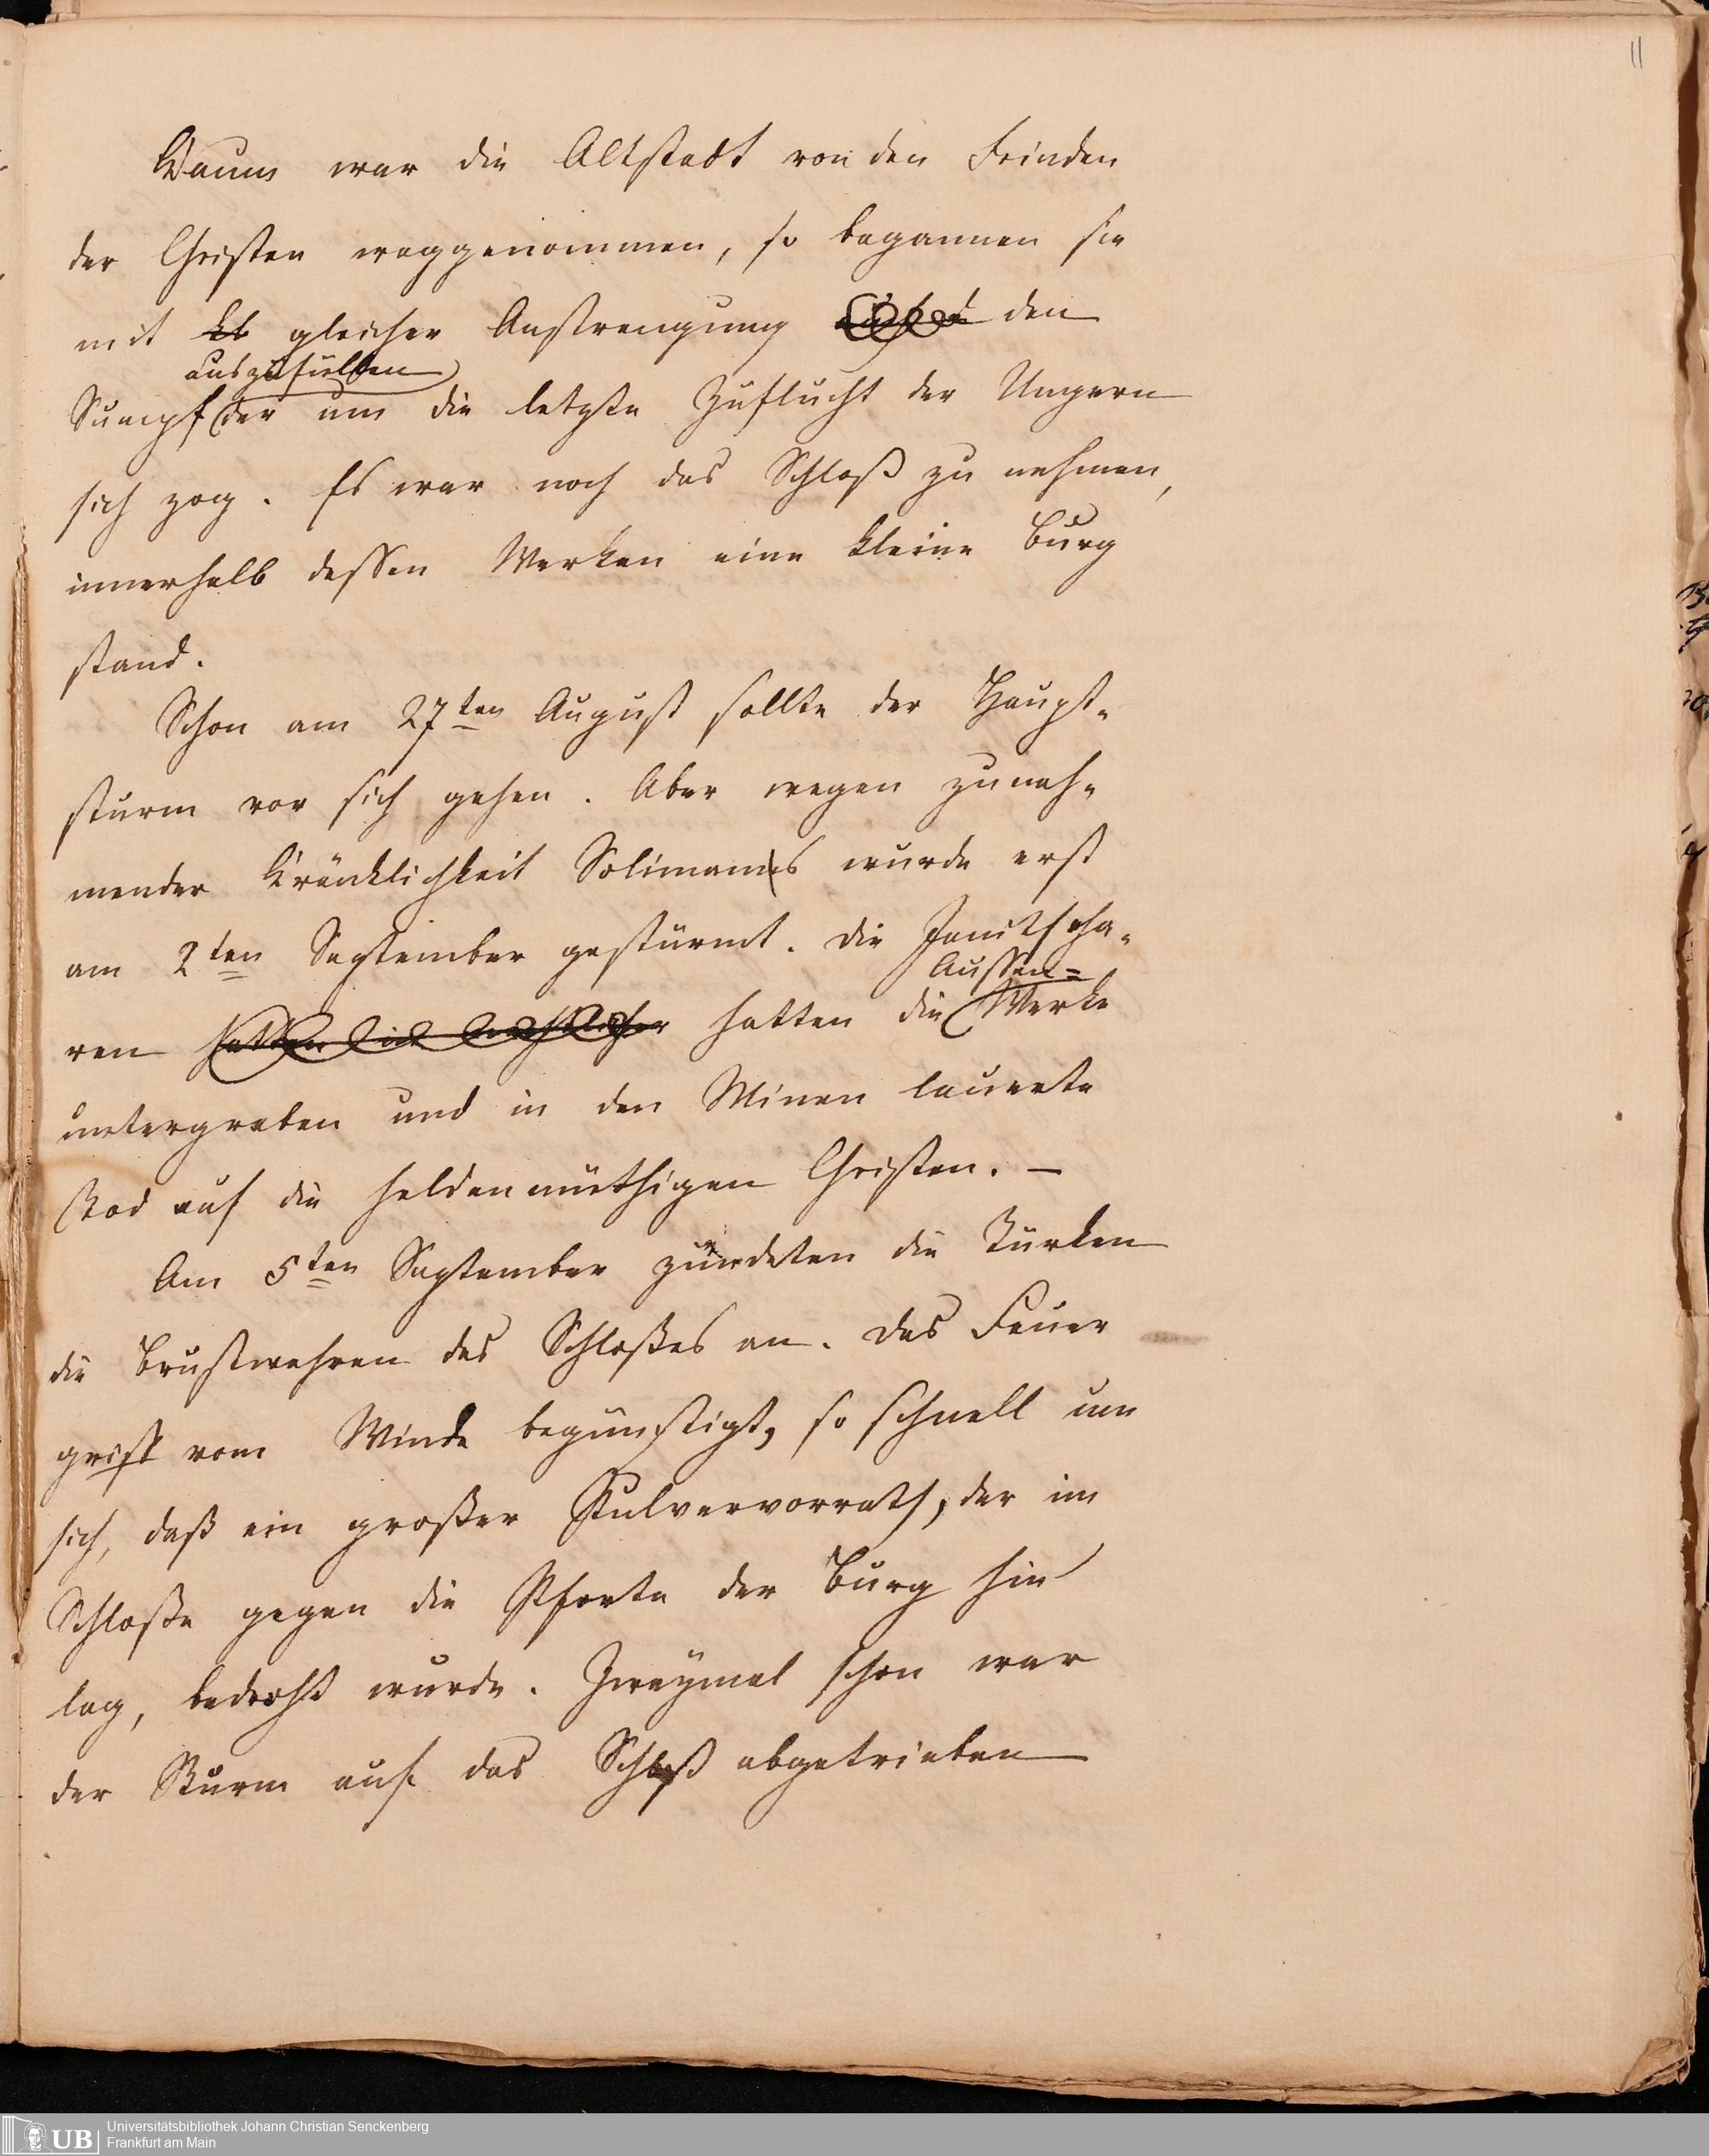 11
Kaum war die Altstadt von den Feinden
der Christen weggenommen, so begannen sie
mit gleicher Anstrengung den
auszufüllen
Sumpf der um die letzte Zuflucht der Ungern
sich zog. Es war noch das Schloß zu nehmen,
innerhalb dessen Werken eine kleine Burg
stand.
Schon am 27ten August sollte der Haupt-
sturm vor sich gehen. Aber wegen zuneh-
mender Kränklichkeit Solimans wurde erst
am 2ten September gestürmt. Die Janitscha-
Aussen-
ren hatten die Werke
untergraben und in den Minen lauerte
Tod auf die heldenmüthigen Christen. —
Am 5ten September zündeten die Türken
die Brustwehren des Schloßes an. Das Feuer
griff vom Winde begünstigt, so schnell um
sich, daß ein großer Pulvervorrath, der im
Schloße gegen die Pforte der Burg hin
lag, bedroht wurde. Zweymal schon war
der Sturm auf das Schloß abgetrieben
UB
Universitätsbibliothek Johann Christian Senckenberg
Frankfurt am Main